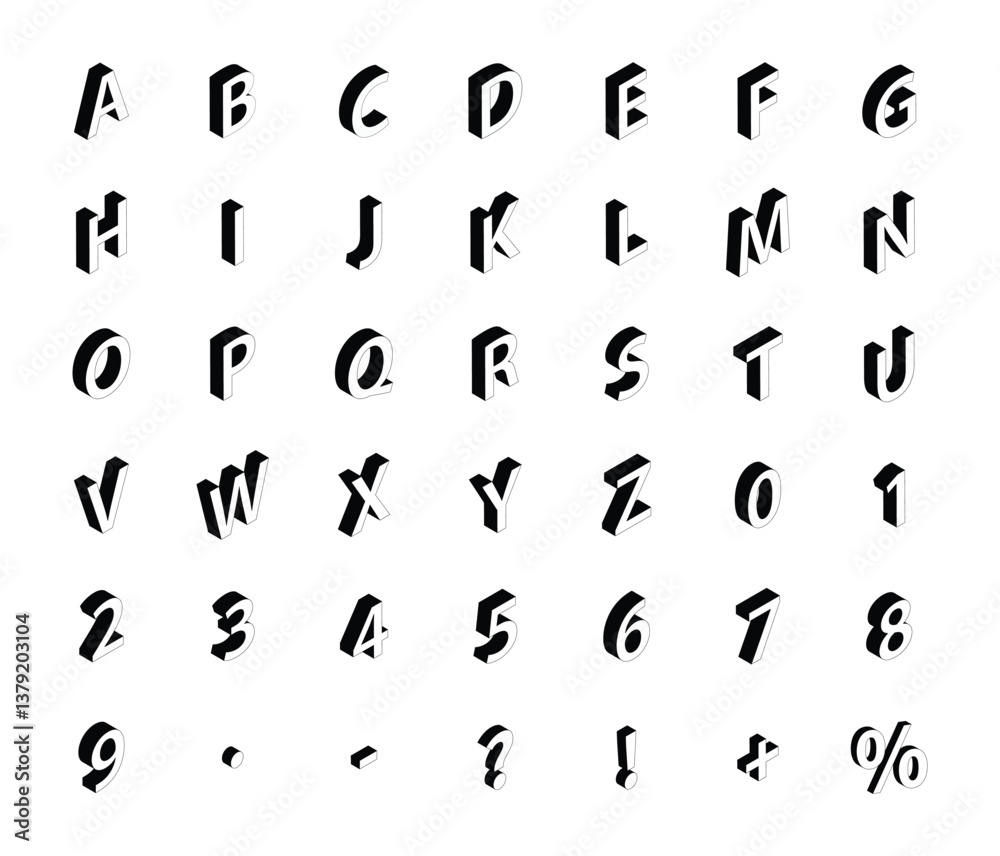 A B C D E F G
H I J K L M N
O P Q R S T U
V W X Y Z 0 1
2 3 4 5 6 7 8
9 . - ? ! + %
Adobe Stock | #1379203104